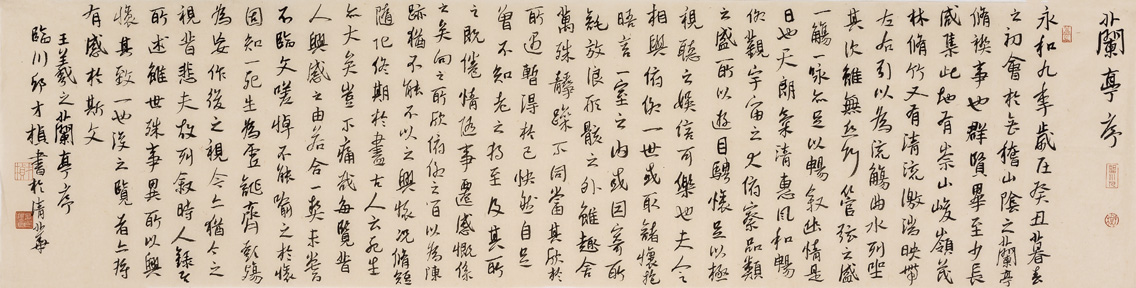 兰蘭亭序
永和九年歲在癸丑暮春
之初會於會稽山陰之蘭亭
脩禊事也群賢畢至少長
咸集此地有崇山峻嶺茂
林脩竹又有清流激湍映帶
左右引以為流觴曲水列坐
其次雖無絲竹管弦之盛
一觴一詠亦足以暢敘幽情是
日也天朗氣清惠風和暢
仰觀宇宙之大俯察品類
之盛所以遊目騁懷足以極
視聽之娛信可樂也夫人之
相與俯仰一世或取諸懷抱
晤言一室之內或因寄所
託放浪形骸之外雖趣舍
萬殊靜躁不同當其欣於
所遇暫得於己快然自足
曾不知老之將至及其所
之既倦情隨事遷感慨係
之矣向之所欣俯仰之間以為陳
跡猶不能不以之興懷況脩短
隨化終期於盡古人云死生
亦大矣豈不痛哉每覽昔
人興感之由若合一契未嘗
不臨文嗟悼不能喻之於懷
固知一死生為虛誕齊彭殤
為妄作後之視今亦猶今之
視昔悲夫故列敘時人錄其
所述雖世殊事異所以興
懷其致一也後之覽者亦將
有感於斯文
王羲之蘭亭序
臨川邱才楨書於清華